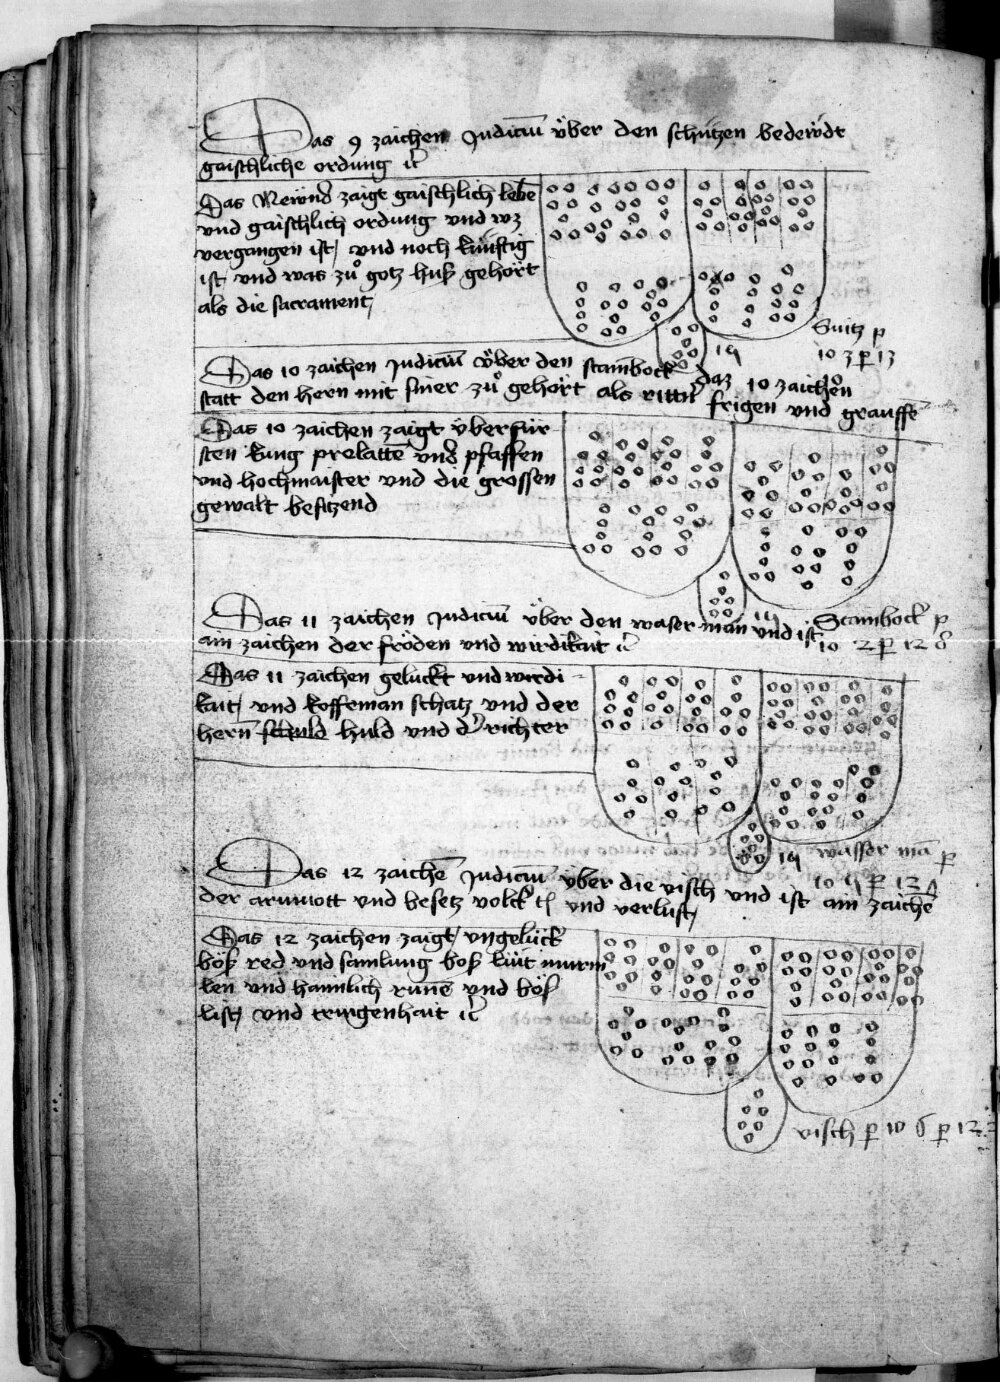 Das 9 zaichen Judiciu͞ über den schützen bedewdt
gaischliche ordung
Das Mewnd zaigt gaischlich lebe
und gaischlich ordung und wz
vergangen ist und noch künftig
ist und was zů gotz huß gehört
als die sacrament
Sūtz p
19 10 3 p 13
Das 10 zaichen Judiciu͞ über den stainbock Daz 10 zaichen
statt den hern mit siner zů gehört als rittr frigen und grauffe
Das 10 zaichen zaigt über für-
sten küng prelatte͞ und pfaffen
und hochmaister und die grossen
gewalt besitzend
Das 11 zaichen Judiciu͞ über den waser man und ist
Stainbock p
10 2 p 12 8
ain zaichen der fröden und wirdikait
Das 11 zaichen gelückt und wirdi-
kait und koffeman schatz und der
hern͞ schuld huld und d' richter
19 wasser ma͞ p
10 9 p 12
Das 12 zaiche͞ Judiciu͞ über die visch und ist ain zaiche͞
der armuott und besetz volck und verlust
Das 12 zaichen zaigt ungelück
böß red und samlung boß lüt murm
len und haimlich rune͞ und böß
list und tringenhait
visch p 10 6 p 12